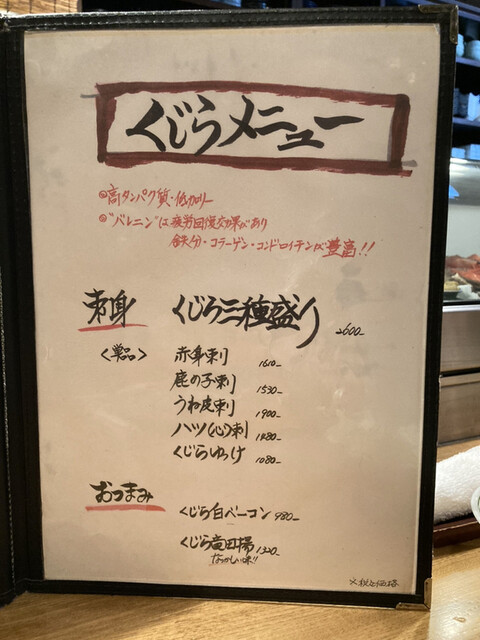 くじらメニュー
◎高タンパク質・低カロリー
◎"バレニン"は疲労回復効果があり
鉄分・コラーゲン・コンドロイチンが豊富!!
刺身 くじら三種盛り 2600-
<単品> 赤身刺 1610-
鹿の子刺 1530-
うね皮刺 1900-
ハツ(心)刺 1480-
くじらゆっけ 1080-
おつまみ くじら白ベーコン 980-
くじら竜田揚 1320-
なつかしい味!!
※税込価格